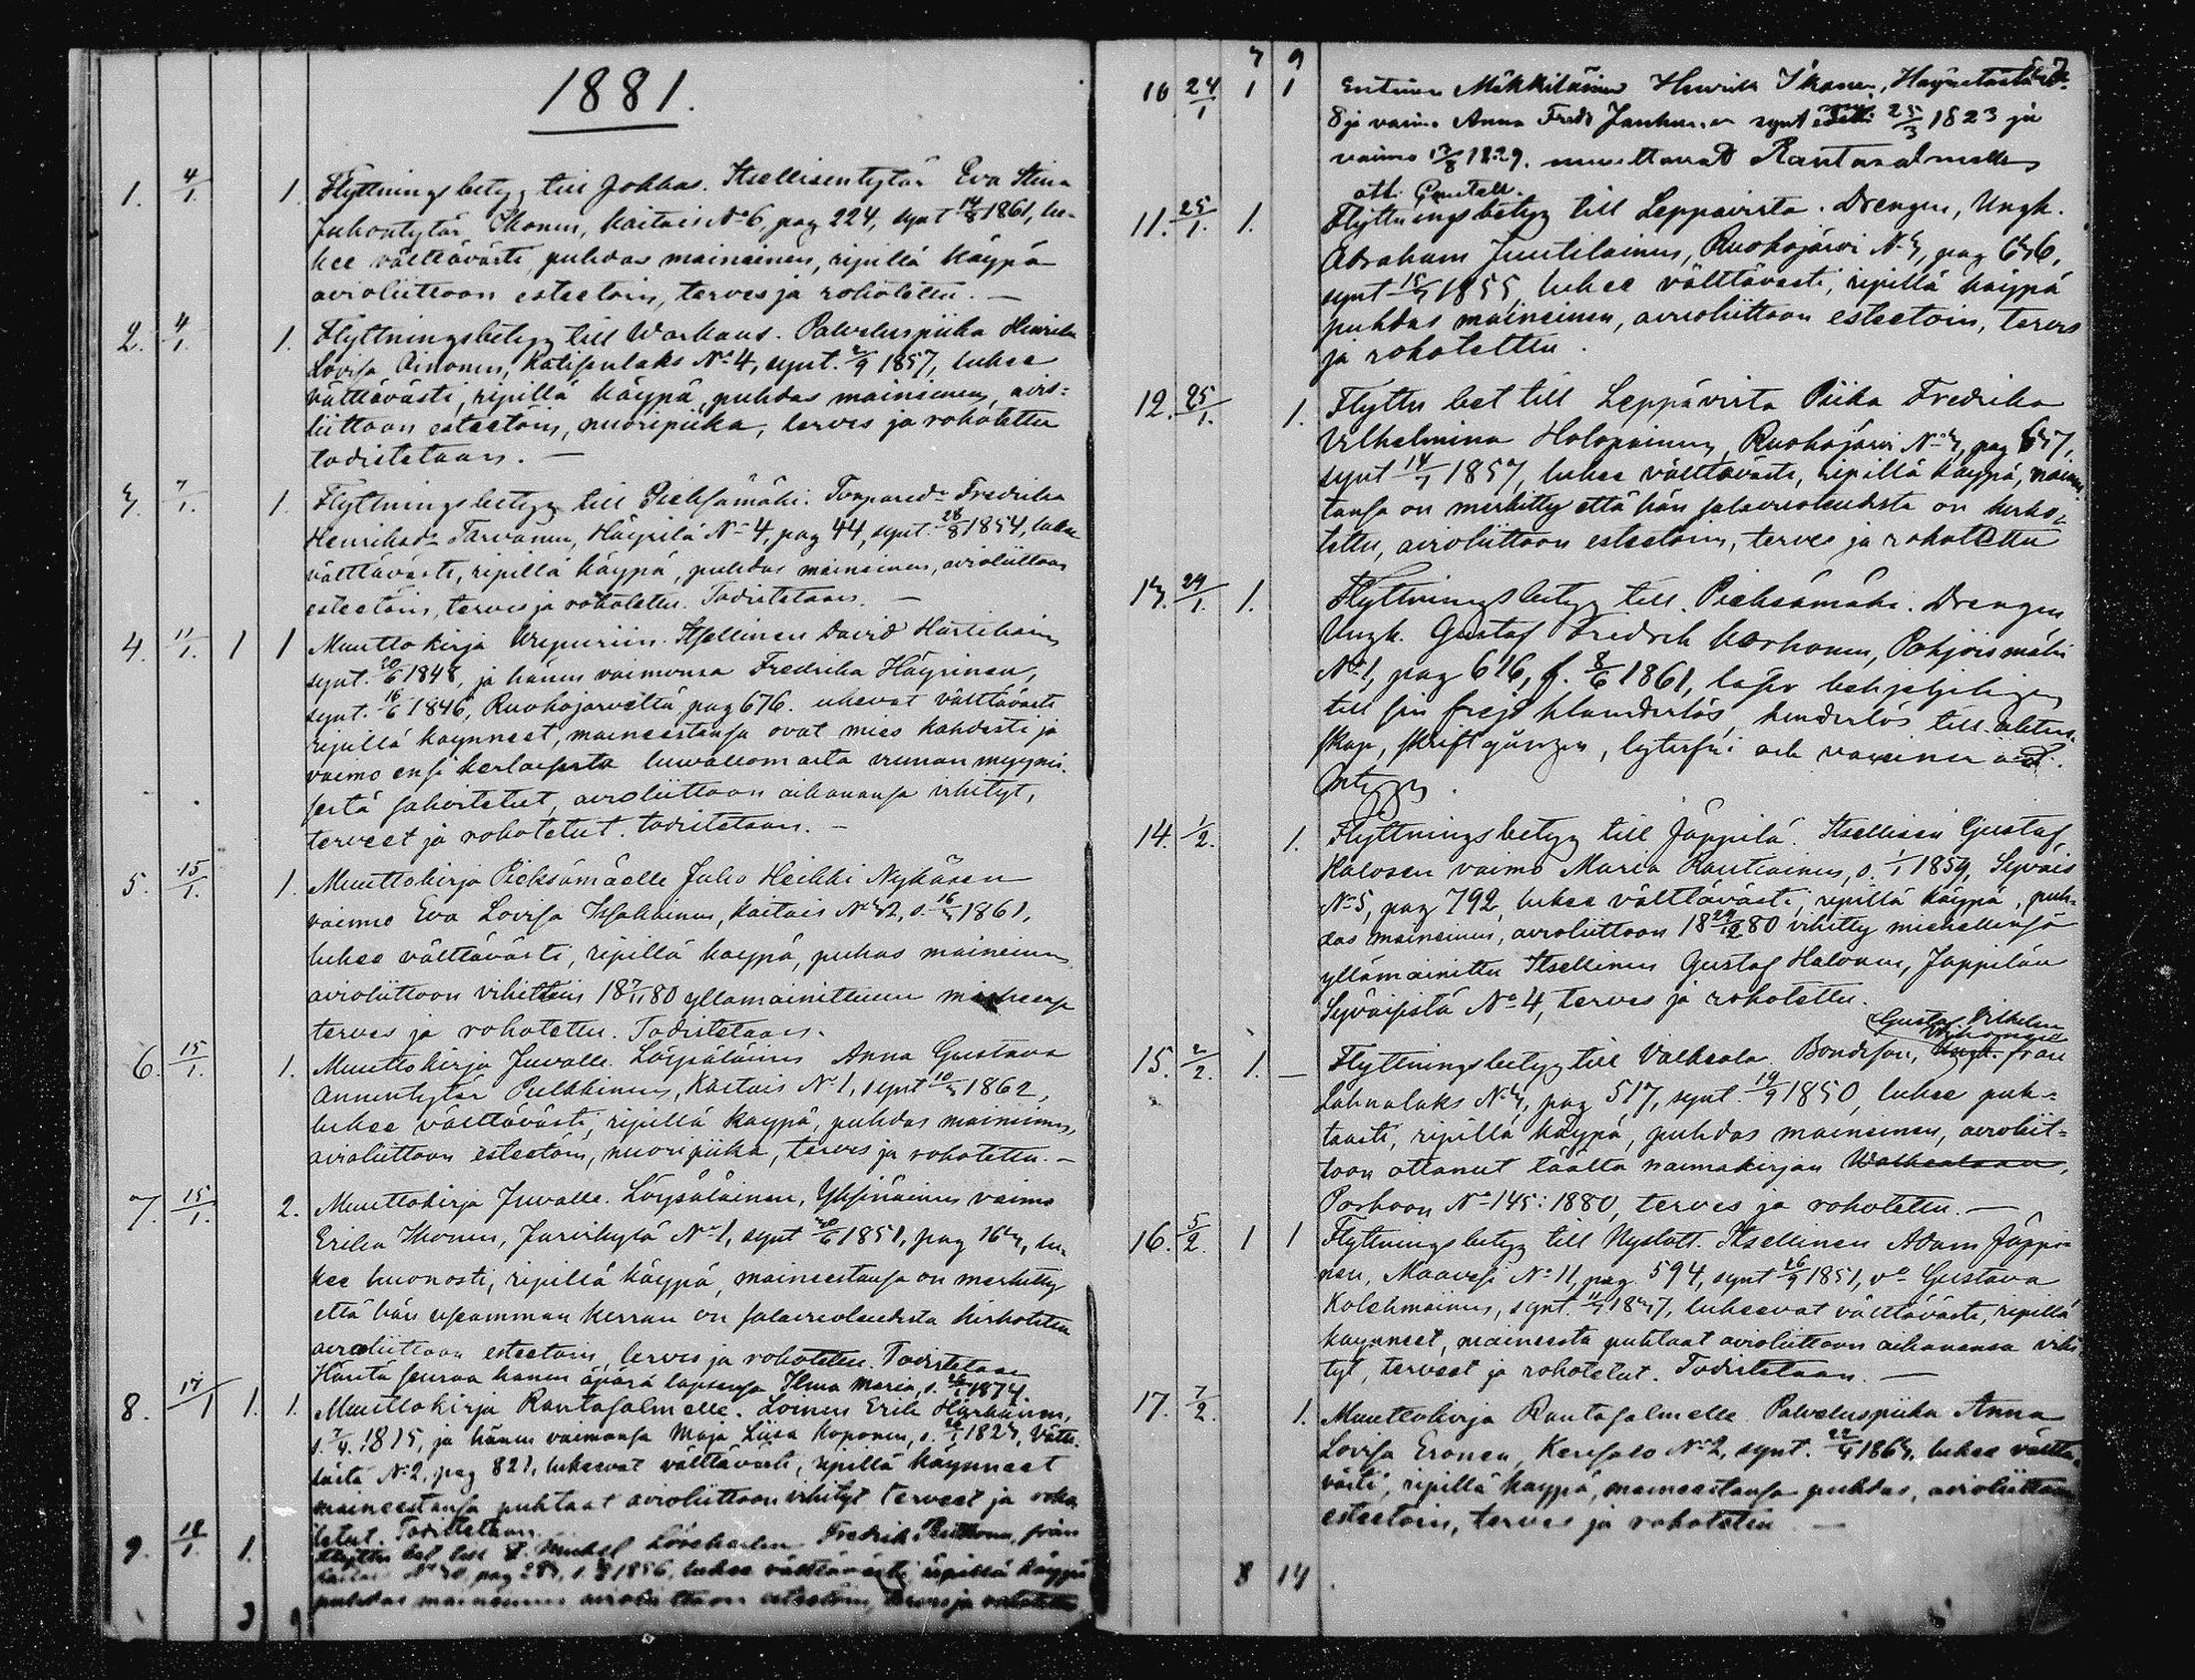 1881.
1. 4/1. 1. Flyttningsbetyg till Jokkas. Itsellisentytär Eva Stina
Juhontytär Ikonen, Kaitais No 6, pag 224, synt 14/8 1861, lu-
kee välttävästi, puhdas maineinen, ripillä käypä
avioliittoon esteetöin, terves ja rokotettu. —
2. 4/1. 1. Flyttningsbetyg till Warkaus. Palveluspiika Henrika
Lovisa Ainonen, Katisenlaks No 4, synt. /9 1857, lukee
välttävästi, ripillä käypä, puhdas maineinen, avio=
liittoon esteetöin, nuoripiika, terves ja rokotettu
todistetaan. —
3. 7/1. 1. Flyttningsbetyg till Pieksämäki. Torpared: Fredrika
Henriksdr Tarvainen, Häyrilä No 4, pag 44, synt. 28/8 1854, lukee
välttävästi, ripillä käypä, puhdas maineinen, avioliittoon
esteetöin, terves ja rokotettu. Todistetaan. —
4. 11/1. 1 1 Muuttokirja Wiepuriin. Itsellinen David Hartikainen
synt. 20/6 1848, ja hänen vaimonsa Fredrika Häyrinen,
synt. 16/6 1846, Ruokojärveltä pag 676. lukevat välttävästi
ripillä käynneet, maineestansa ovat mies kahdesti ja
vaimo ensi kertaisesta luvattomasta viinan myymi-
sestä sakoitetut, avioliittoon aikanansa vihityt,
terveet ja rokotetut. todistetaan. —
5. 15/1. 1. Muuttokirja Pieksämäelle Juho Heikki Nykäsen
vaimo Eva Lovisa Issakainen, Kaitais No 32, s. 16/3 1861,
lukee välttävästi, ripillä käypä, puhdas maineinen
avioliittoon vihittiin 18 7/11 80 yllämainittuun miehensä
terves ja rokotettu. Todistetaan.
6. 15/1. 1. Muuttokirja Juvalle. Löysäläinen Anna Gustava
Annentytär Pulkkinen, Kaitais No 1, synt 10/3 1862,
lukee välttävästi, ripillä käypä, puhdas maineinen,
avioliittoon esteetöin, nuoripiika, terves ja rokotettu. —
7. 15/1. 2. Muuttokirja Juvalle. Löysäläinen, Yksinäinen vaimo
Erika Ikonen, Järvikylä No 1, synt 30/6 1851, pag 163, lu-
kee huonosti, ripillä käypä, maineestansa on merkitty
että hän useamman kerran on salavuoteudesta kirkotettu
avioliittoon esteetöin, terves ja rokotettu. Todistetaan
Häntä seuraa hänen äpärä lapsensa Ilma Maria, s. 1874.
8. 17/1 1. 1. Muuttokirja Rantasalmelle. Loinen Erik Härkönen,
s. 7/4. 1815, ja hänen vaimonsa Maja Liisa Koponen, s. 26/1 1823, Vätti-
lästä No 2, pag 821, lukeevat välttävästi, ripillä käynneet
maineestansa puhtaat avioliittoon vihityt terveet ja roko
tetut. Todistetaan.
9. 18/1. 1. Flyttn bet till St. Michel Löskarlen Fredrik från
pag 283, s. 1856, lukee välttävästi ripillä käypä
puhdas maineinen avioliittoon esteetöin, terves ja rokotettu
3 9
7 9
10 24/1 1 1 Entinen Mökkiläinen Henrik Ikonen, Häyrilästä No
8 ja vaimo Anna Fredr Janhunen synt 25/3 1823 ja
vaimo 17/8 1829. muuttavat Rantasalmelle
11. 25/1. 1. Flyttningsbetyg till Leppävirta. Drengen, Ungk.
Abraham Juutilainen, Ruokojärvi No 3, pag 636,
synt 15/3 1855, lukee välttävästi, ripillä käypä
puhdas maineinen, avioliittoon esteetöin, terves
ja rokotettu.
12. 25/1. 1. Flyttn bet till Leppävirta Piika Fredrika
Vilhelmina Holopainen, Ruokojärvi No 3, pag 637,
synt 14/7 1857, lukee välttävästi, ripillä käypä, mainees
tansa on merkitty että hän salavuoteudesta on kirko-
tettu, avioliittoon esteetöin, terves ja rokotettu
13. 29/1. 1. Flyttningsbetyg till Pieksämäki. Drengen
Ungk. Gustaf Fredrik Korhonen, Pohjoismäki
No 1, pag 616, f. 8/6 1861, läser behjelpligen
till sin frejd klanderlös, hinderlös till äkten-
skap, skriftgången, lytesfri och vaccinerad.
Intygas.
14. 1/2. 1. Flyttningsbetyg till Jäppilä. Itsellisen Gustaf
Halosen vaimo Maria Rautiainen, s. 1/1 1859, Syväis
No 5, pag 792, lukee välttävästi, ripillä käypä, puh-
das maineinen, avioliittoon 18 29/12 80 vihitty miehellensä
yllämainittu Itsellinen Gustaf Halonen, Jäppilän
Syväisistä No 4, terves ja rokotettu.
Gustaf Vilhelm
15. 2/2. 1. — Flyttningsbetyg till Valkeala. Bondeson, Ungk. från
Lahnalaks No 3, pag 517, synt. 19/9 1850, lukee puh-
taasti, ripillä käypä, puhdas maineinen, avioliit=
toon ottanut täältä naimakirjan Walkealaan,
Porhoon No 145: 1880, terves ja rokotettu. —
16. 5/2. 1 1 Flyttningsbetyg till Nyslott. Itsellinen Adam Jäppi-
nen, Maavesi No 11, pag. 594, synt 26/9 1851, vo Gustava
Kolehmainen, synt. 11/3 1837, lukeevat välttävästi, ripillä
käynneet, maineesta puhtaat avioliittoon aikanansa vihi
tyt, terveet ja rokotetut. Todistetaan. —
17. 7/2. 1. Muuttokirja Rantasalmelle Palveluspiika Anna
Lovisa Eronen, Kerisalo No 2, synt. 22/4 1863, lukee välttä-
västi, ripillä käypä, maineestansa puhdas, avioliittoon
esteetöin, terves ja rokotettu —
8 14